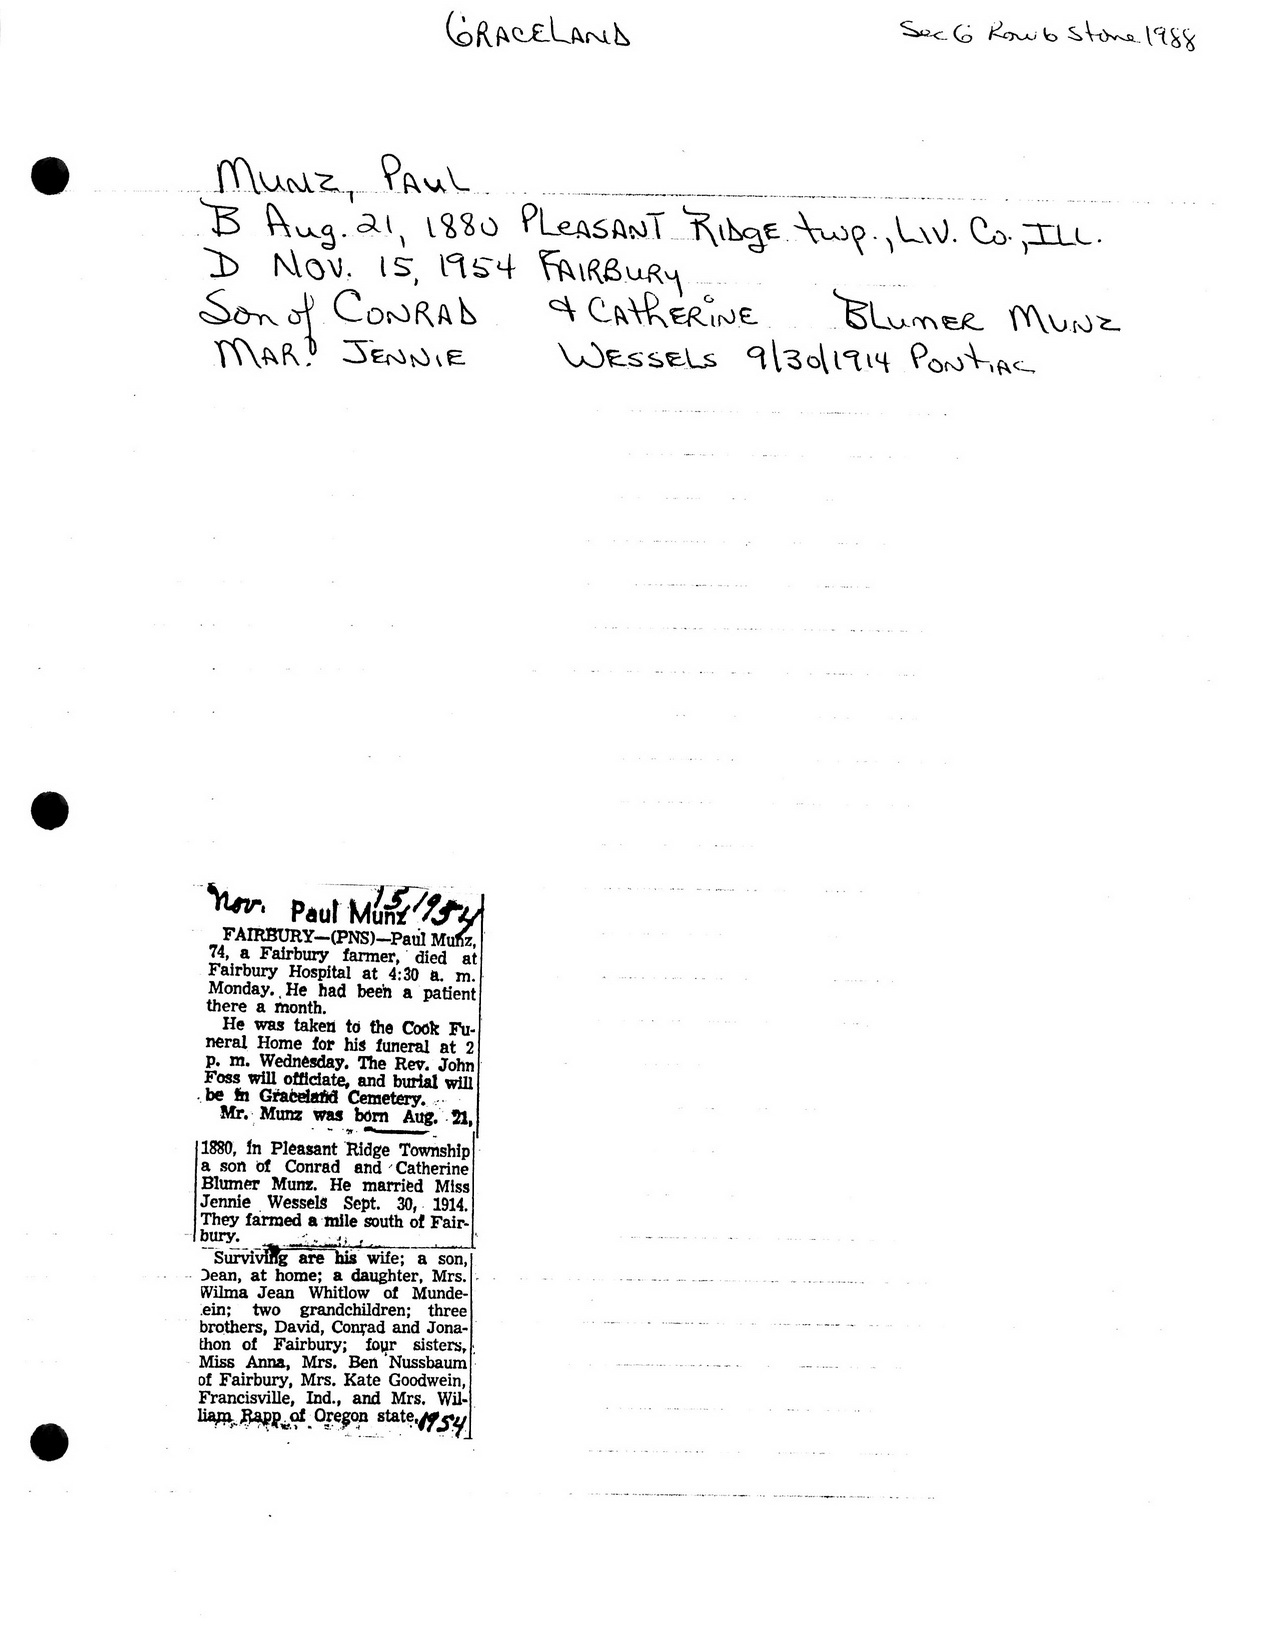 GRACELAND
Sec 6 Row 6 Stone 1988
MUNZ, PAUL
B Aug. 21, 1880 PLEASANT RIDGE twp., LIV. Co., ILL.
D NOV. 15, 1954 FAIRBURY
Son of CONRAD & CATHERINE BLUMER MUNZ
MAR. JENNIE WESSELS 9/30/1914 PONTIAC
Nov. 15, 1954
Paul Munz
FAIRBURY—(PNS)—Paul Munz,
74, a Fairbury farmer, died at
Fairbury Hospital at 4:30 a. m.
Monday. He had been a patient
there a month.
He was taken to the Cook Fu-
neral Home for his funeral at 2
p. m. Wednesday. The Rev. John
Foss will officiate, and burial will
be in Graceland Cemetery.
Mr. Munz was born Aug. 21,
1880, in Pleasant Ridge Township
a son of Conrad and Catherine
Blumer Munz. He married Miss
Jennie Wessels Sept. 30, 1914.
They farmed a mile south of Fair-
bury.
Surviving are his wife; a son,
Dean, at home; a daughter, Mrs.
Wilma Jean Whitlow of Munde-
ein; two grandchildren; three
brothers, David, Conrad and Jona-
thon of Fairbury; four sisters,
Miss Anna, Mrs. Ben Nussbaum
of Fairbury, Mrs. Kate Goodwein,
Francisville, Ind., and Mrs. Wil-
liam Rapp of Oregon state.
1954